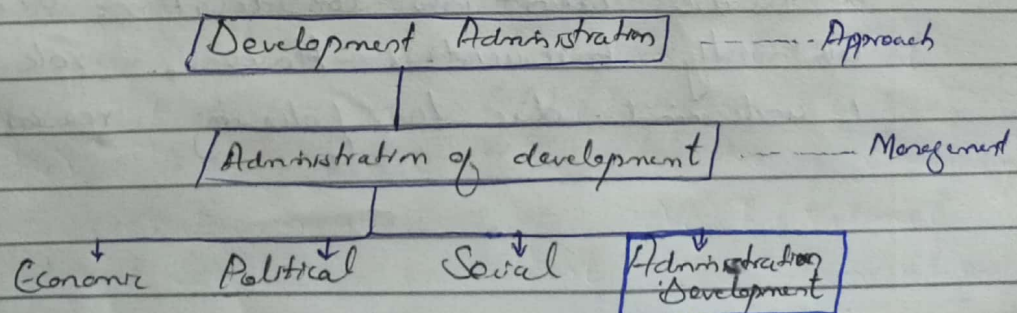 Development Administration ------- Approach
Administration of development ------- Management
Economic Political Social Administration
Development